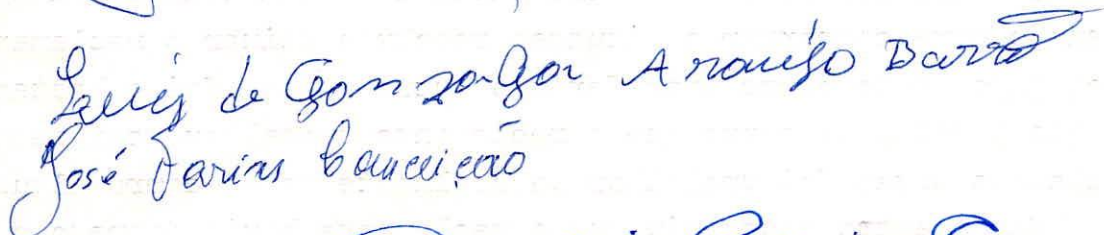 Luiz de Gonzaga Araujo Barro
José Farias Conceição